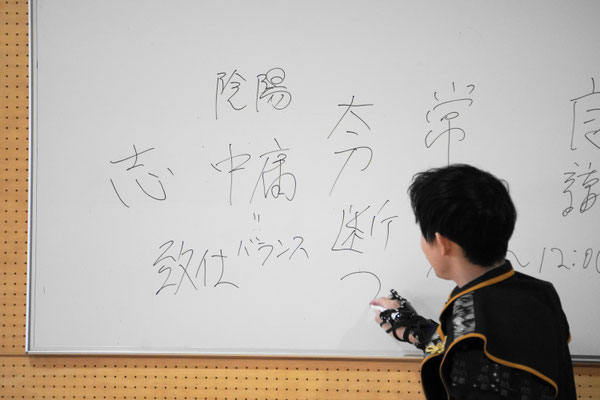 常
~12:00
太刀
断つ
陰陽
中庸
=
バランス
志
致仕